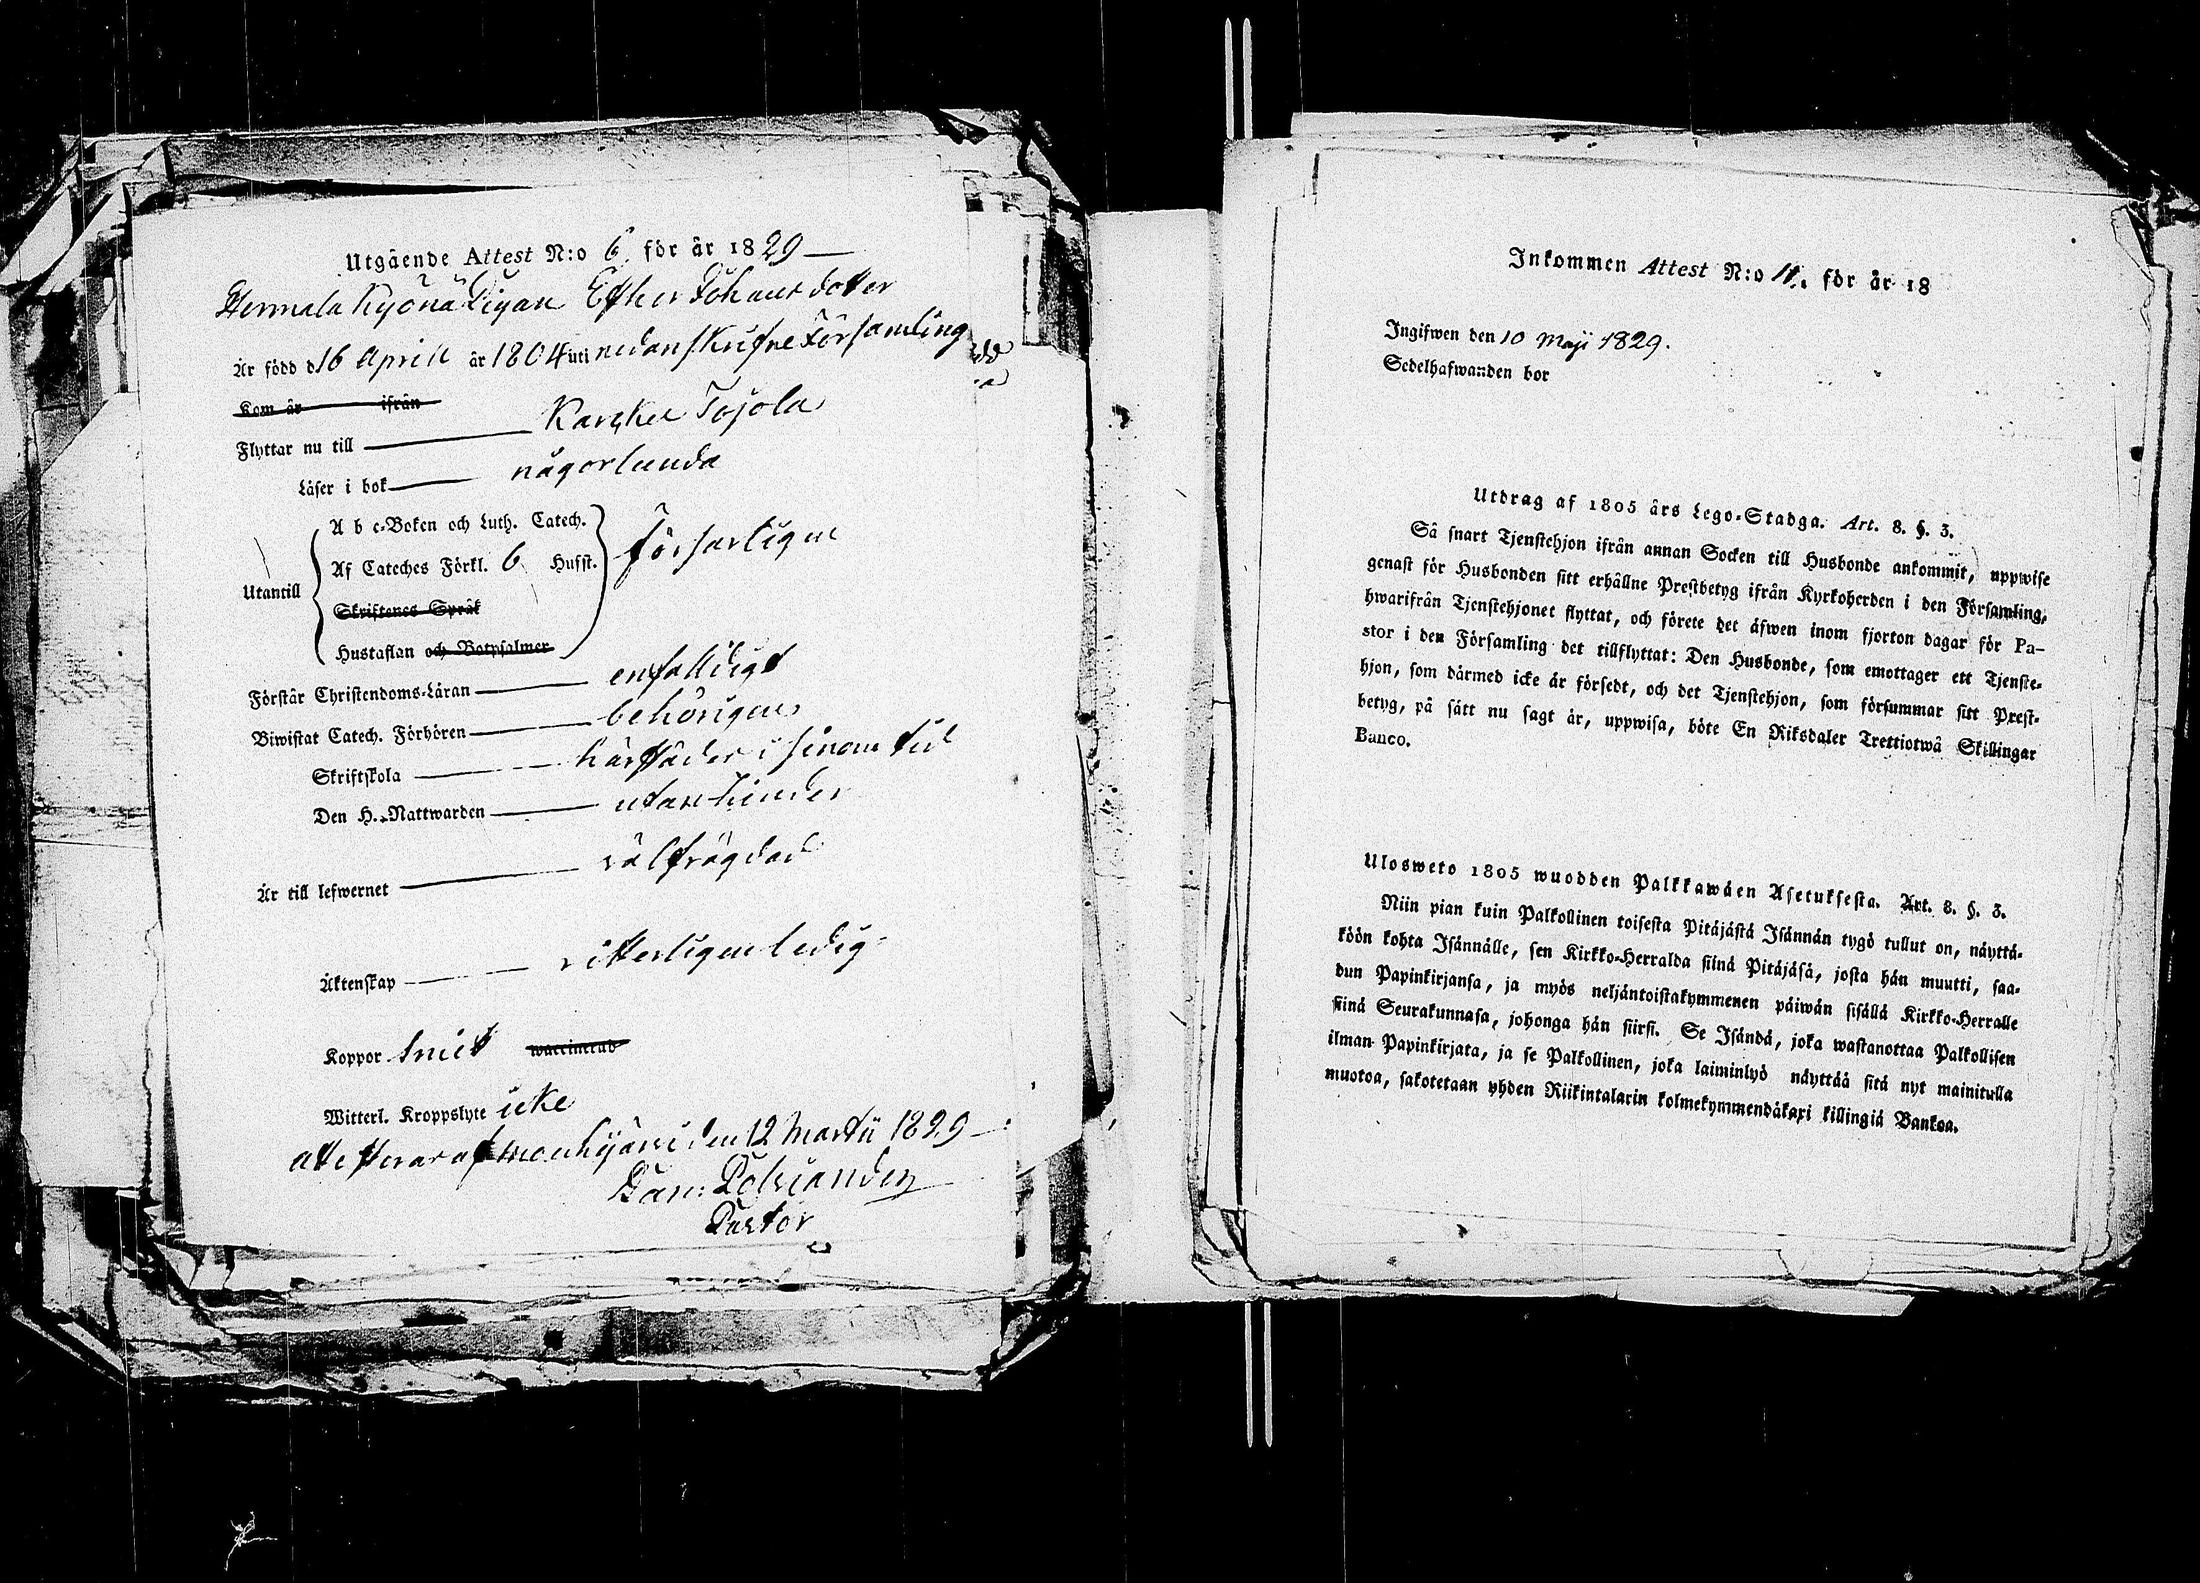 Utgående Attest N:o 6 för år 1829
Hermala Kyönä Pigan Esther Johansdotter
Är född d 16 April år 1804 uti nedanskrifne Församling
Kom år ifrån
Flyttar nu till Karcku Tojola
Läser i bok någorlunda
A b c-Boken och Luth. Catech.
Af Cateches Förkl. 6 Hufst. Försarligen
Utantill
Skriftenes Språk
Hustaflan och Botpsalmer
Förstår Christendoms-Läran enfalldigt
Biwistat Catech. Förhören behörigen
Skriftskola härstädes i sinom tid
Den H. Nattwarden utan hinder
Är till lefwernet välfrägdad
Äktenskap vitterligen ledig
Koppor smit waccinerad
Witterl. Kroppslyte icke
attesterar af den 12 Martii 1829
Dan:
Pastor
Inkommen Attest N:o 11. för år 18
Ingifwen den 10 Maji 1829.
Sedelhafwanden bor
Utdrag af 1805 års Lego-Stadga. Art. 8. §. 3.
Så snart Tjenstehjon ifrån annan Socken till Husbonde ankommit, uppwise
genast för Husbonden sitt erhållne Prestbetyg ifrån Kyrkoherden i den Församling,
hwarifrån Tjenstehjonet flyttat, och förete det äfwen inom fjorton dagar för Pa-
stor i den Församling det tillflyttat: Den Husbonde, som emottager ett Tjenste-
hjon, som därmed icke är försedt, och det Tjenstehjon, som försummar sitt Prest-
betyg, på sätt nu sagt är, uppwisa, böte En Riksdaler Trettiotwå Skillingar
Banco.
Ulosweto 1805 wuodden Palkkawäen Asetuksesta. Art. 8. §. 3.
Niin pian kuin Palkollinen toisesta Pitäjästä Isännän tygö tullut on, näyttä-
köön kohta Isännälle, sen Kirkko-Herralda siinä Pitäjäsä, josta hän muutti, saa-
dun Papinkirjansa, ja myös neljäntoistakymmenen päiwän sisällä Kirkko-Herralle
siinä Seurakunnasa, johonga hän siirsi. Se Isändä, joka wastanottaa Palkollisen
ilman Papinkirjata, ja se Palkollinen, joka laiminlyö näyttää sitä nyt mainitulla
muotoa, sakotetaan yhden Riikintalarin kolmekymmendäkaxi killingiä Bankoa.